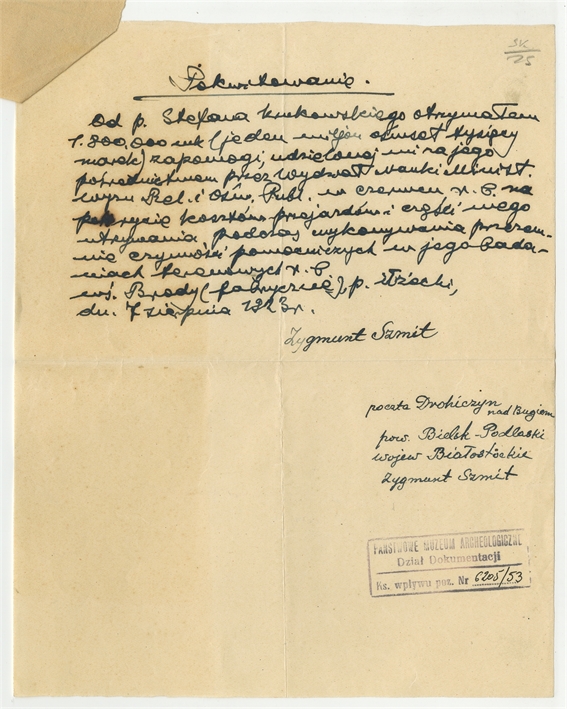 SK/25
Pokwitowanie.
Od p. Stefana Krukowskiego otrzymałem
1.800,000 mk (jeden miljon ośmset tysięcy
marek) zapomogi, udzielonej mi za jego
pośrednictwem przez Wydział Nauki Minist.
Wyzn. Rel. i Ośw. Publ. w czerwcu r. b. na
pokrycie kosztów przejazdów i części mego
utrzymania podczas wykonywania przeze-
mnie czynności pomocniczych w jego bada-
niach terenowych r. b.
wś. Brody (fabryczne), p. iłżecki,
dn. 7 sierpnia 1923 r.
Zygmunt Szmit
poczta Drohiczyn
nad Bugiem
pow. Bielsk-Podlaski
wojew Białostockie
Zygmunt Szmit
PAŃSTWOWE MUZEUM ARCHEOLOGICZNE
Dział Dokumentacji
Ks. wpływu poz. Nr 6205/53